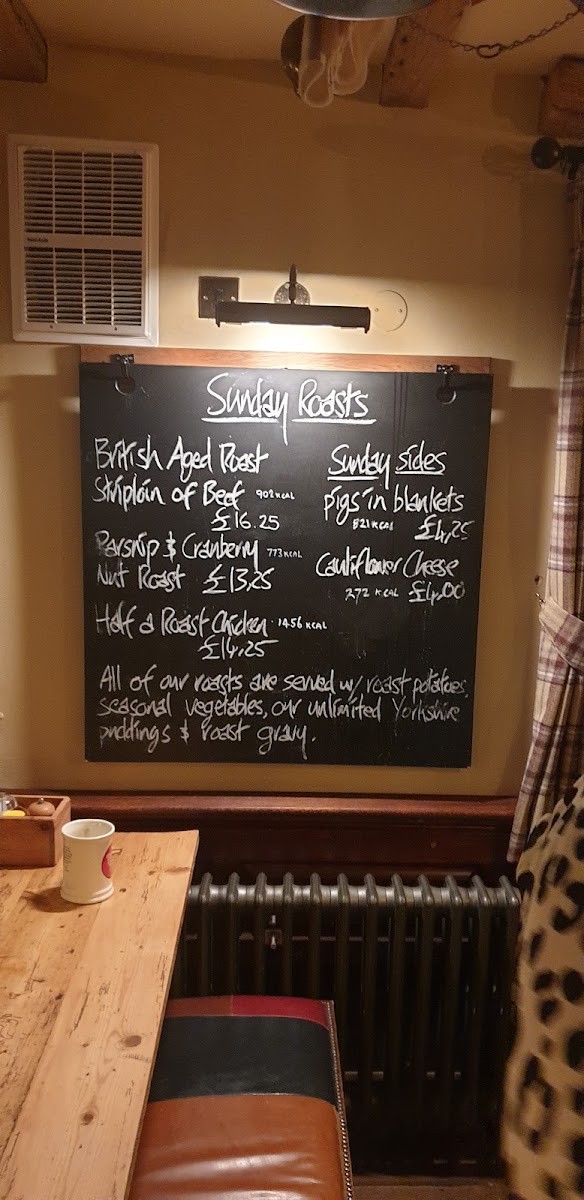 Sunday Roasts
British Aged Roast
Striploin of Beef 902 KCAL
£16.25
Parsnip & Cranberry 773 KCAL
Nut Roast £13,25
Half a Roast Chicken 1456 KCAL
£14.25
Sunday sides
pigs in blankets
821 KCAL £4,25
Cauliflower Cheese
272 KCAL £4.00
All of our roasts are served w/ roast potatoes,
seasonal vegetables, our unlimited Yorkshire
puddings & roast gravy.